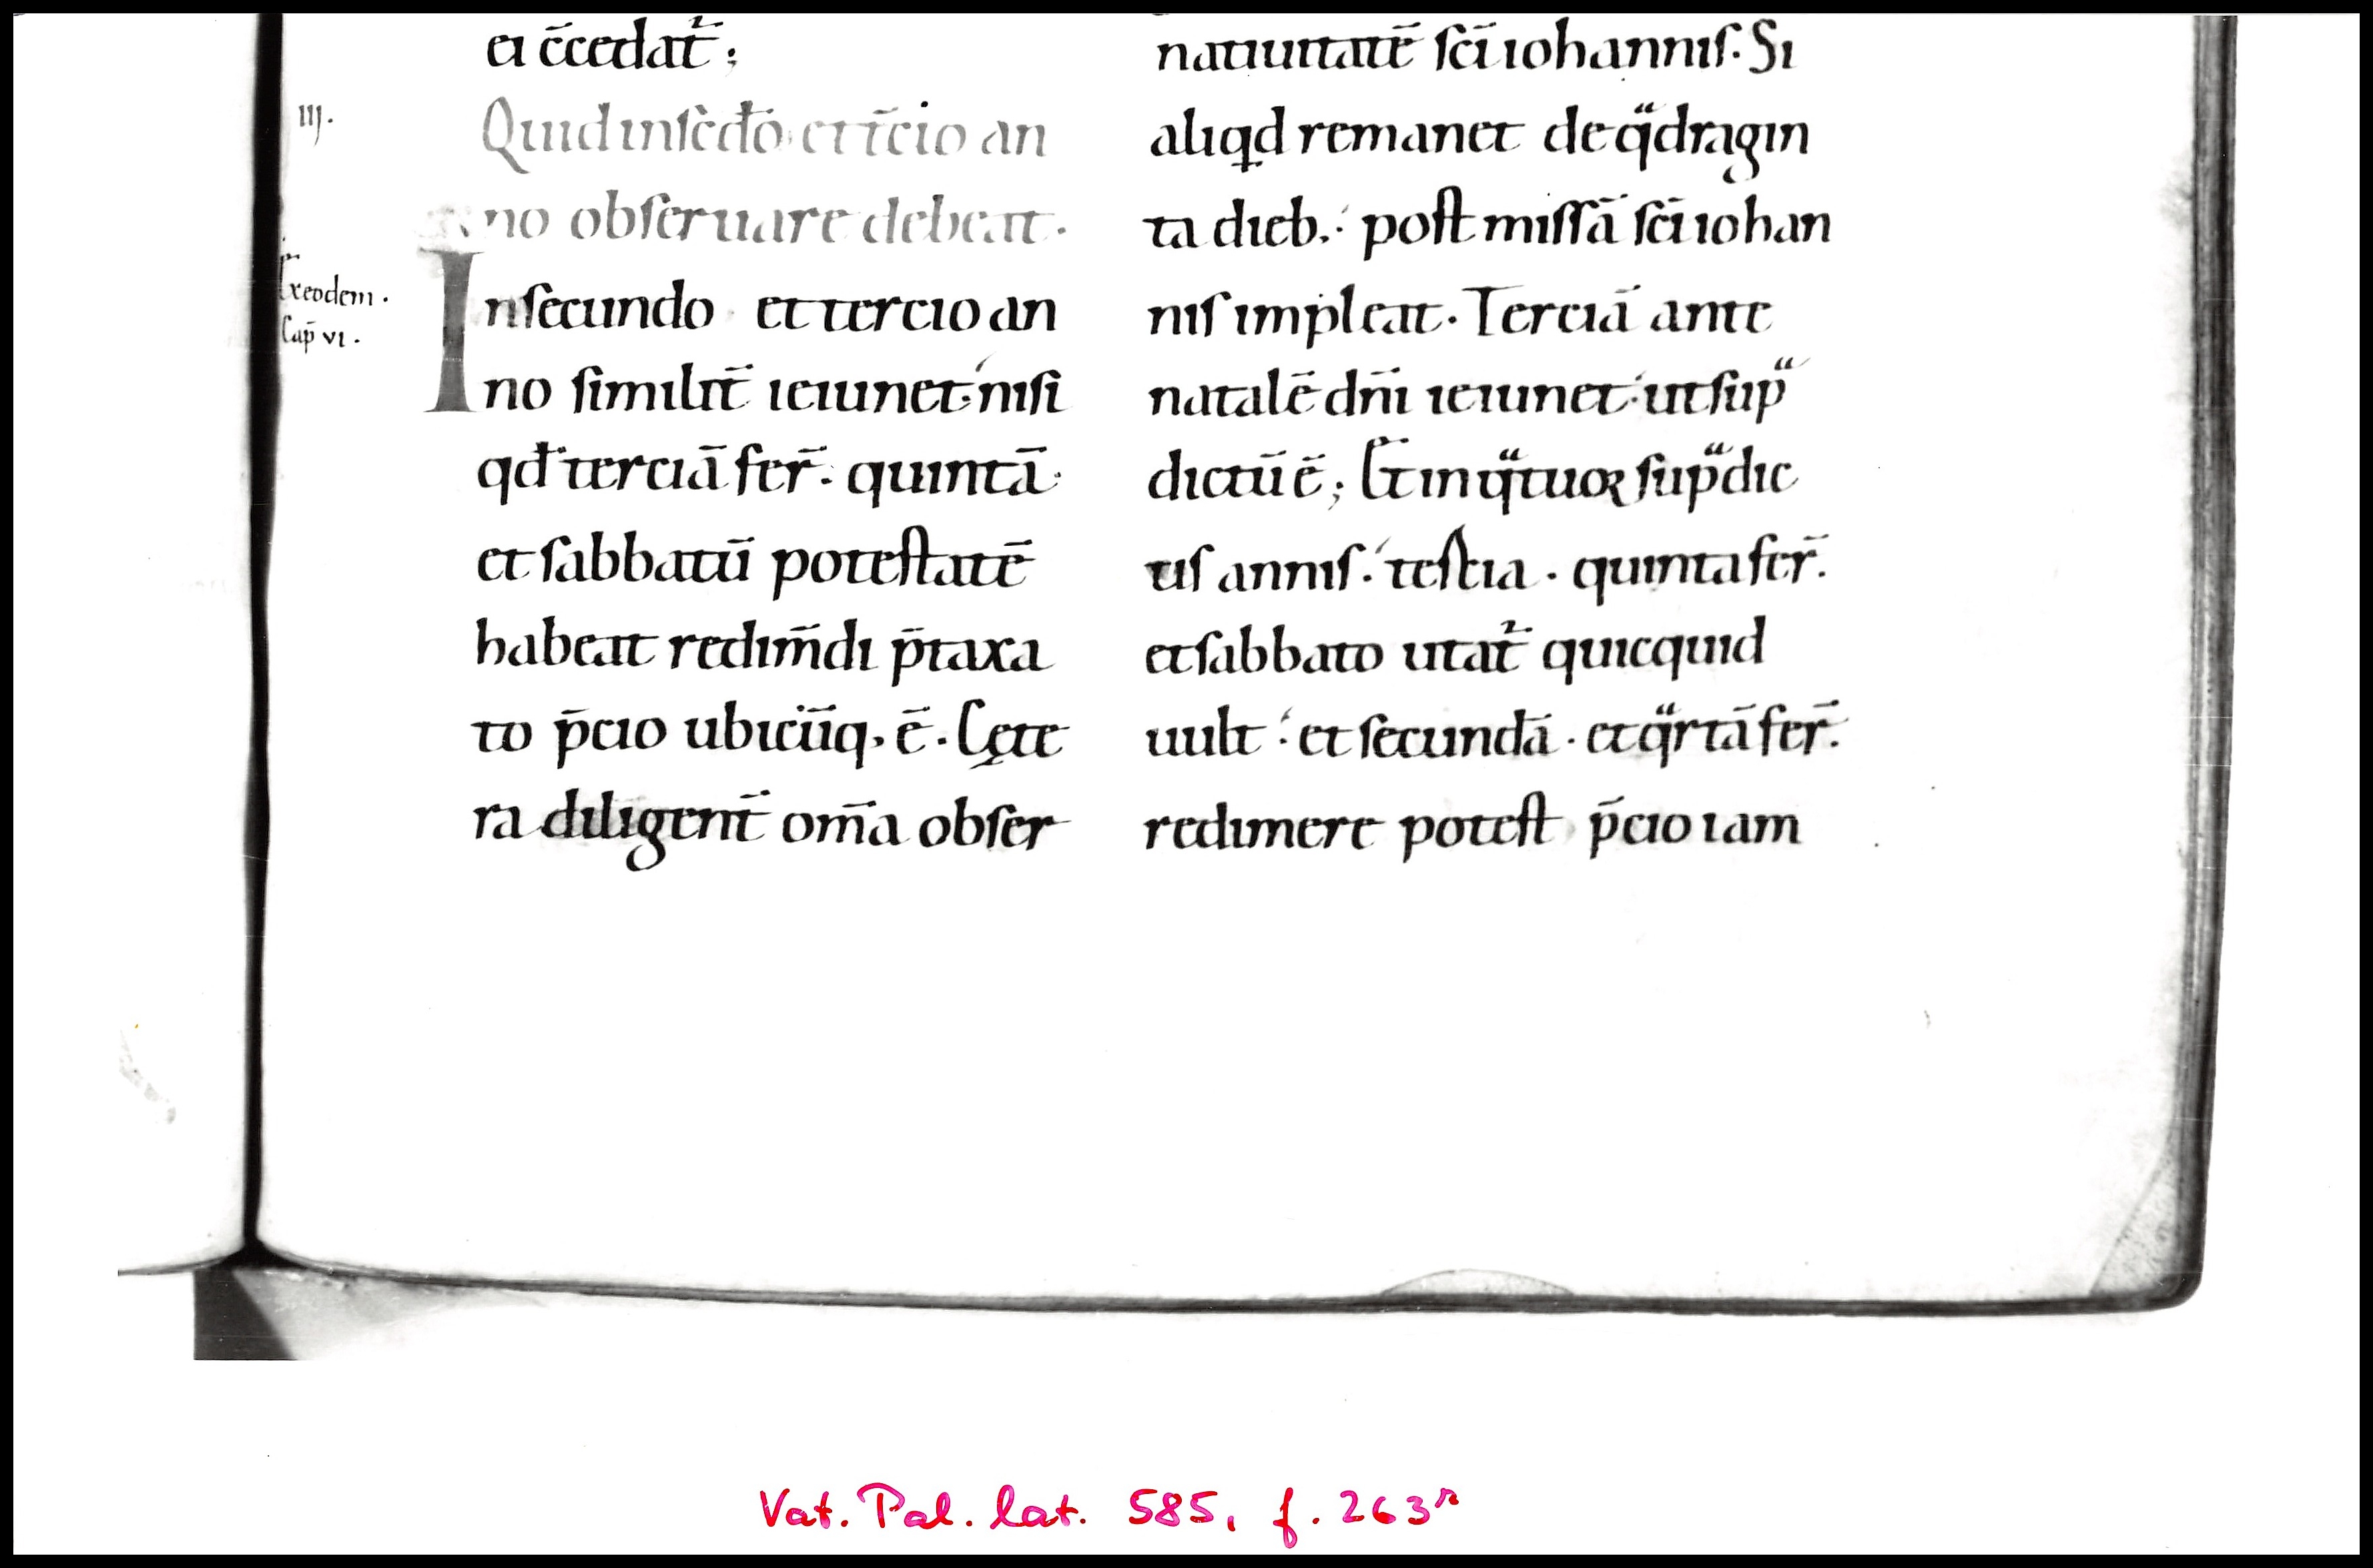 ei c̄cedat᷑ ;
III.
Quid in sc̄do et t̄cio an
no obseruare debeat .
Ex eodem .
Cap̄ VI .
In secundo et tercio an
no similit̄ ieiunet nisi
qđ terciā fer̄ . quintā .
et sabbatū potestatē
habeat redim̄di p̄taxa
to p̄cio ubicūq, ē . Cęte
ra diligent̄ om̄a obser
natiuitatē sc̄i iohannis . Si
aliqd remanet de qͣdragin
ta dieb. post missā sc̄i iohan
nis impleat . Terciā ante
natalē dn̄i ieiunet ut supͣ
dictū ē ; Et in qͣtuor supͣdic
tis annis . tertia . quinta fer̄ .
et sabbato utat᷑ quicquid
uult : et secundā . et qͣrtā fer̄ .
redimere potest p̄cio iam
Vat. Pal. lat. 585, f. 263ʳ